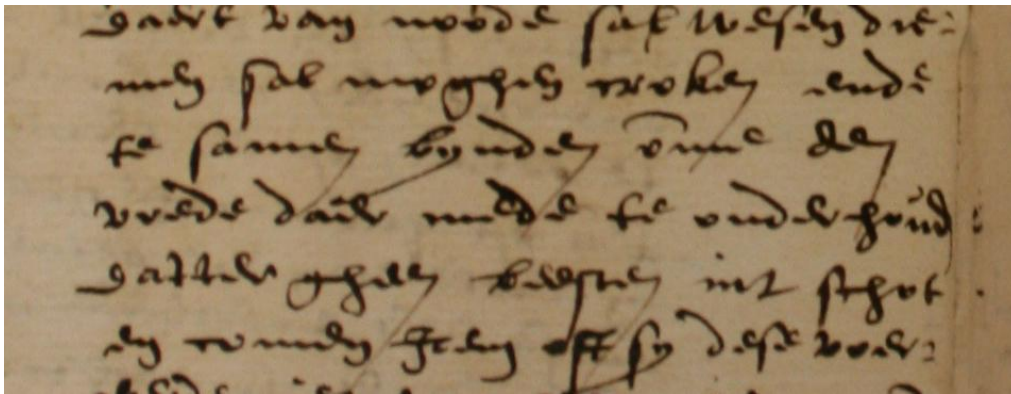 daert van noode sal wesen die-
men sal moghen trocken ende
te samen bynden omme den
vrede daer mede te onderhoud
datter gheen beesten int schot
en comen Item oft sy dese voer-